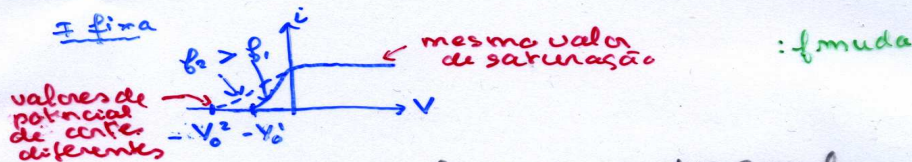 I fixa
i
mesmo valor
de saturação
: f muda
f₂ > f₁
valores de
potencial
de corte
diferentes
- V₀² - V₀¹
V